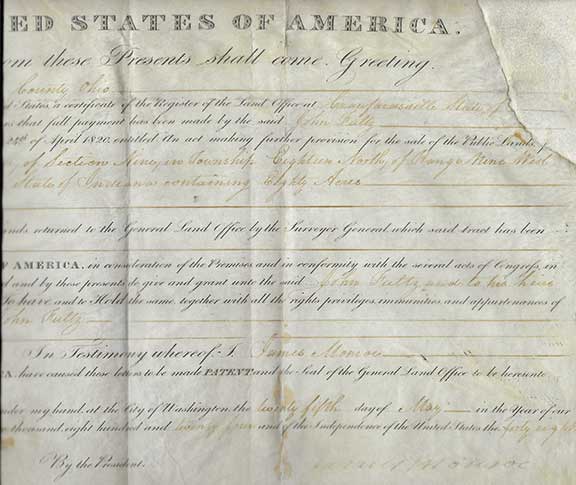 ED STATES OF AMERICA.
om these Presents shall come, Greeting.
County Ohio
d States, a certificate of the Register of the Land Office at Crawfordsville State of
s that full payment has been made by the said John Fultz
24th of April 1820, entitled An act making further provision for the sale of the Public Lands, f
of Section Nine, in Township Eighteen North, of Range Nine West
State of Indiana containing Eighty Acres
nds returned to the General Land Office by the Surveyor General, which said tract has been
F AMERICA, in consideration of the Premises, and in conformity with the several acts of Congress, in
d and by these presents do give and grant unto the said John Fultz and to his heirs
To have and to Hold the same, together with all the rights, privileges, immunities, and appurtenances of
ohn Fultz
In Testimony whereof, I, James Monroe
CA, have caused these letters to be made PATENT, and the Seal of the General Land Office to be hereunto
nder my hand, at the City of Washington, the twenty fifth day of May in the Year of our
e thousand, eight hundred and twenty four and of the Independence of the United States the forty eight
By the President,
James Monroe